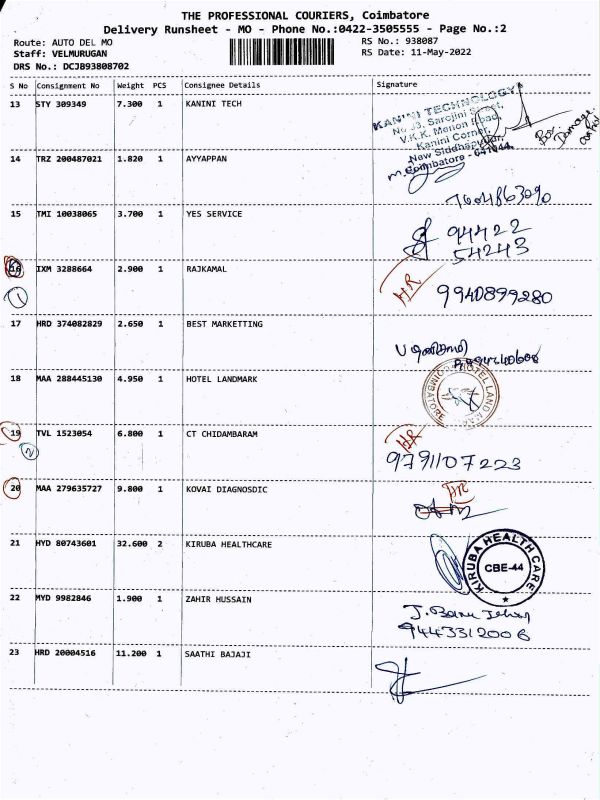 THE PROFESSIONAL COURIERS, Coimbatore
Delivery Runsheet - MO - Phone No.:0422-3505555 - Page No.:2
Route: AUTO DEL MO RS No.: 938087
Staff: VELMURUGAN RS Date: 11-May-2022
DRS No.: DCJB93808702
S No Consignment No Weight PCS Consignee Details Signature
13 STY 309349 7.300 1 KANINI TECH
KANINI TECHNOLOGY
No J3, Sarojini Street,
V.K.K. Menon Road,
Kanini Corner,
New Siddhapudur,
Coimbatore - 641044
Box
Damage
14 TRZ 200487021 1.820 1 AYYAPPAN
7604863090
15 TMI 10038065 3.700 1 YES SERVICE
94422
54243
16 IXM 3288664 2.900 1 RAJKAMAL
HR
9940899280
1
17 HRD 374082829 2.650 1 BEST MARKETTING
18 MAA 288445130 4.950 1 HOTEL LANDMARK
19 TVL 1523054 6.800 1 CT CHIDAMBARAM
HR
9791107223
2
20 MAA 279635727 9.800 1 KOVAI DIAGNOSDIC
HR
21 HYD 80743601 32.600 2 KIRUBA HEALTHCARE
KIRUBA HEALTH CARE
CBE-44
22 MYD 9982846 1.900 1 ZAHIR HUSSAIN
9443312006
23 HRD 20004516 11.200 1 SAATHI BAJAJI